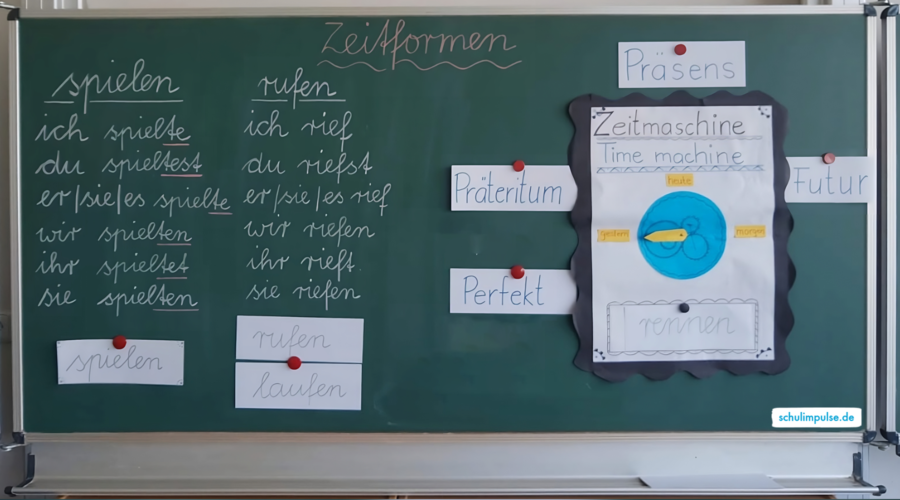 Zeitformen
spielen
ich spielte
du spieltest
er/sie/es spielte
wir spielten
ihr spieltet
sie spielten
spielen
rufen
ich rief
du riefst
er/sie/es rief
wir riefen
ihr rieft
sie riefen
rufen
laufen
Präsens
Präteritum
Perfekt
Futur
Zeitmaschine
Time machine
heute
gestern
morgen
rennen
schulimpulse.de